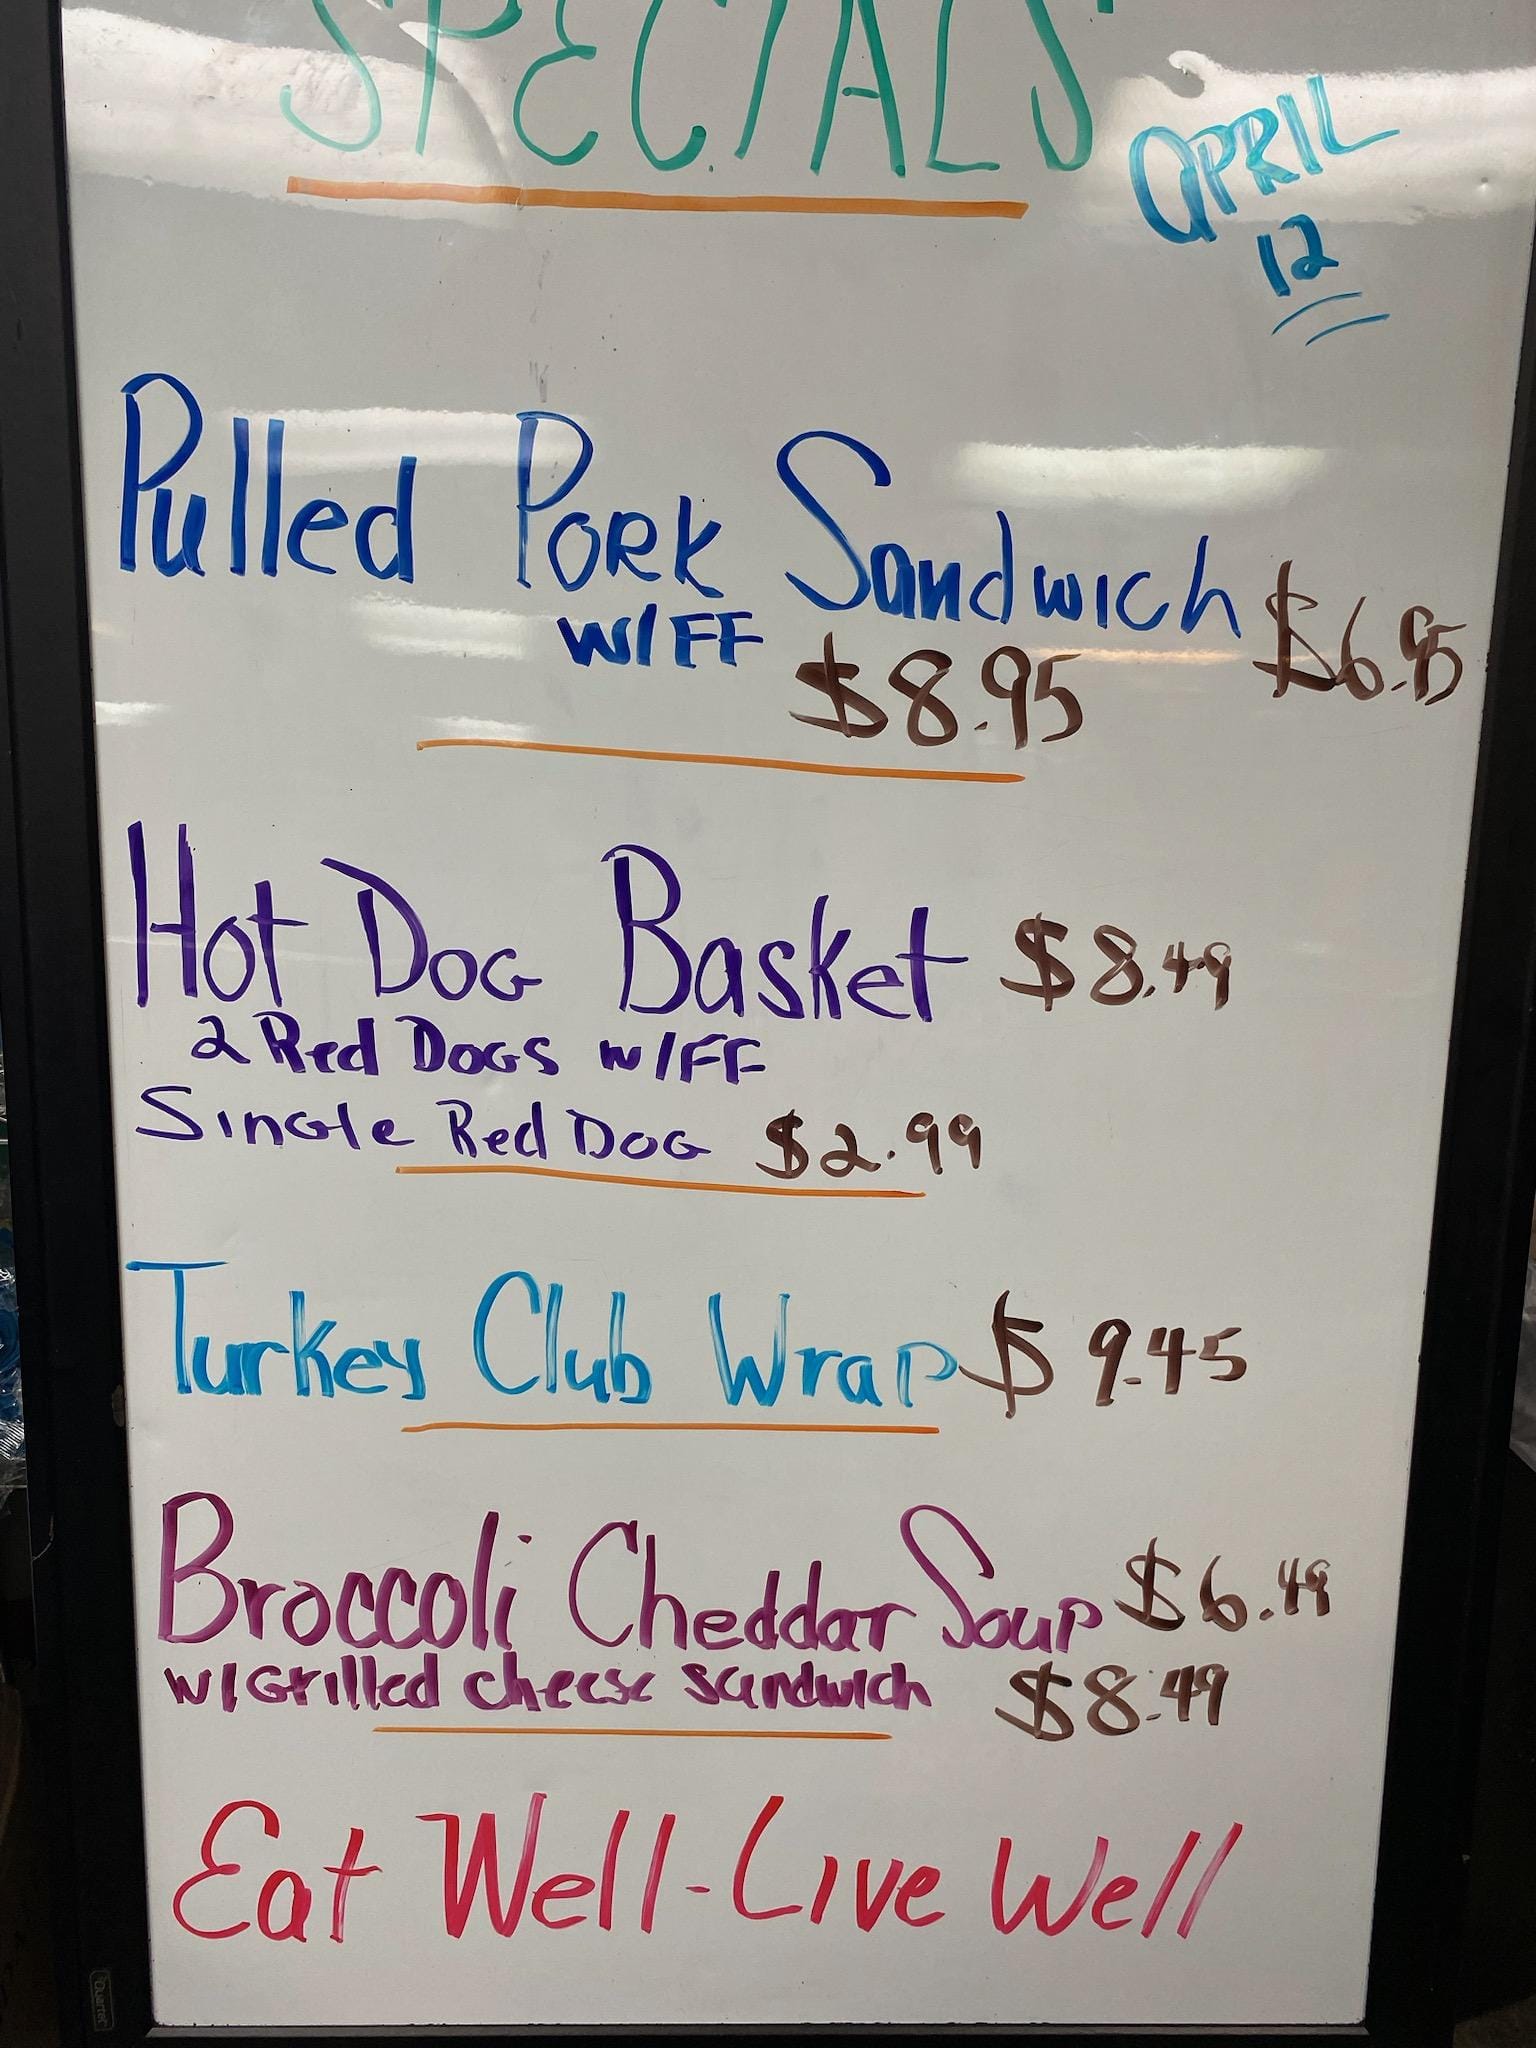 SPECIALS
APRIL
12
Pulled Pork Sandwich $6.95
W/FF $8.95
Hot Dog Basket $8.49
2 Red Dogs w/FF
Single Red Dog $2.99
Turkey Club Wrap $9.45
Broccoli Cheddar Soup $6.49
w/Grilled cheese sandwich $8.49
Eat Well-Live Well
Quartet